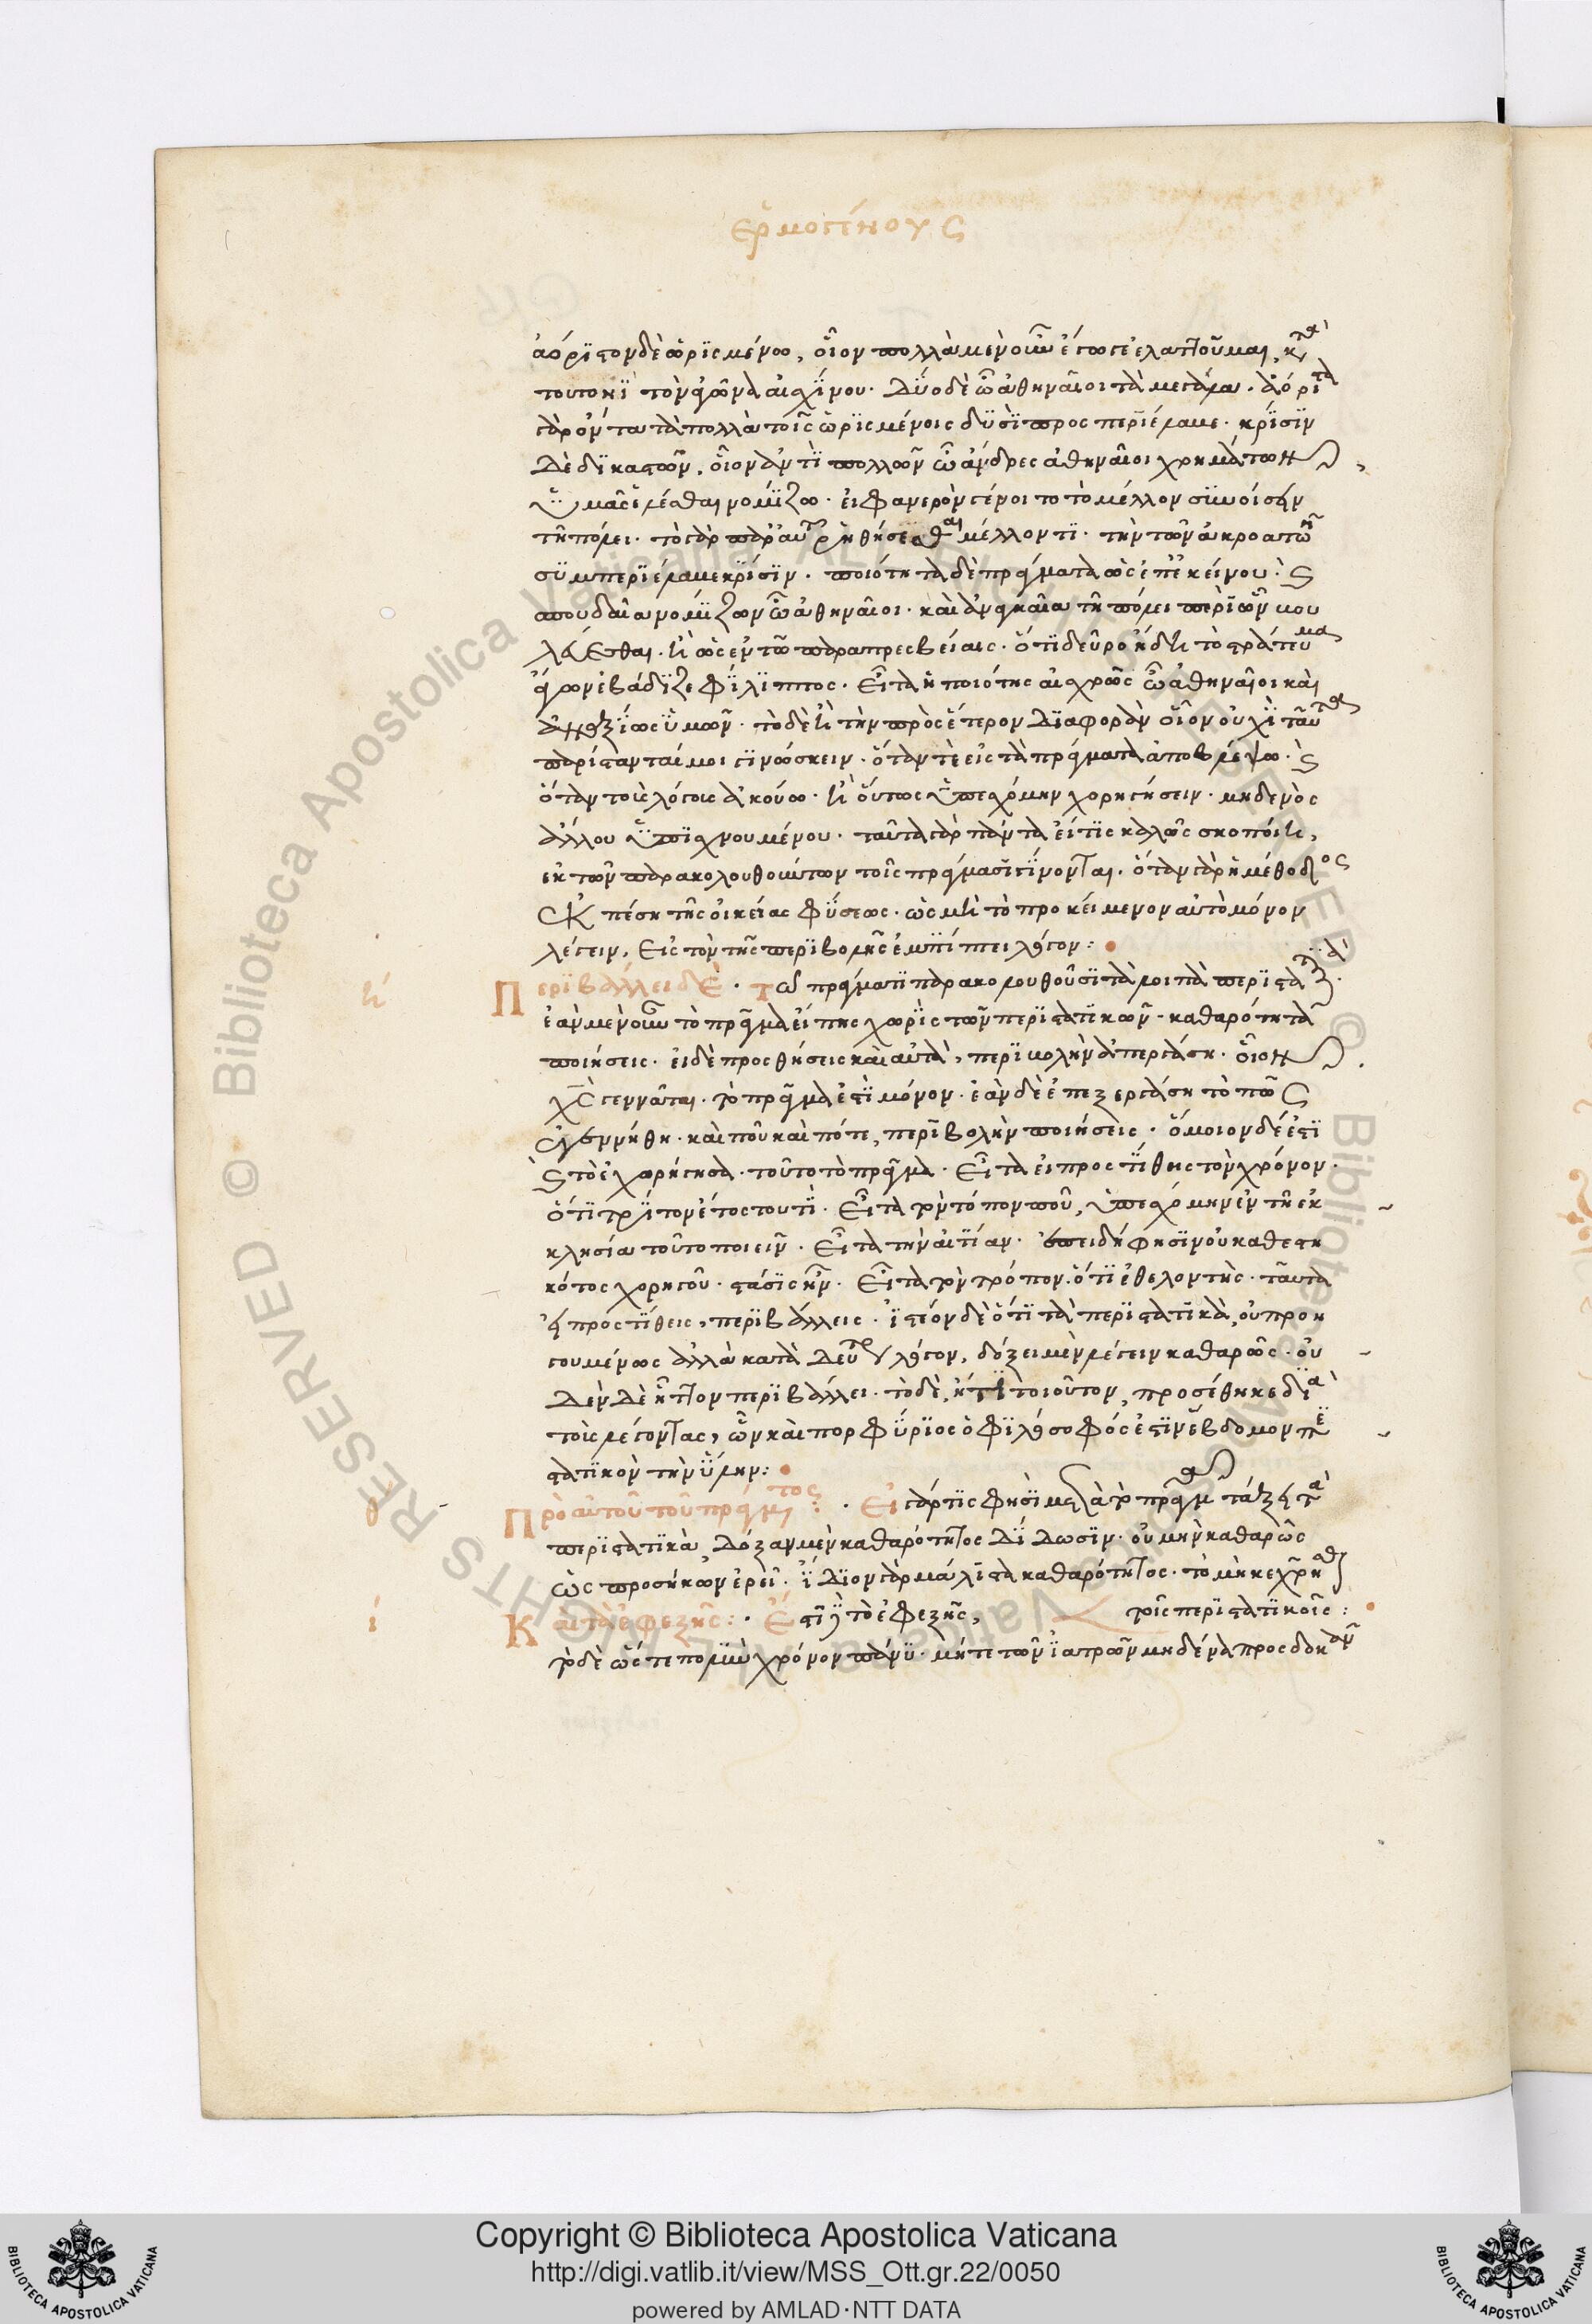 ἑρμογένους
ἀόριστον δὲ ὡρισμένω, οἷον πολλὰ μὲν οὖν ἔγωγε ἐλαττοῦμαι κατὰ
τουτονὶ τὸν ἀγῶνα αἰσχίνου· δύο δὲ ὦ ἀθηναῖοι τὰ μεγάλα· ἀόριστα
γὰρ ὄντα τὰ πολλὰ τοῖς ὡρισμένοις δυσὶ προσπεριέλαβε· κρίσιν
δὲ δικαστῶν, οἷον ἀντὶ πολλῶν ὦ ἄνδρες ἀθηναῖοι χρημάτων
ὑμᾶς ἑλέσθαι νομίζω· εἰ φανερὸν γένοιτο τὸ μέλλον συνοίσειν
τῇ πόλει· τὸ γὰρ παρ' αὐτοῦ ῥηθήσεσθαι μέλλοντι· τὴν τῶν ἀκροατῶν
συμπεριέλαβε κρίσιν· ποιότητα δὲ πράγματα ὡς ἐπ' ἐκείνου· καὶ
σπουδαῖα νομίζων ὦ ἀθηναῖοι· καὶ ἀναγκαῖα τῇ πόλει περὶ ὧν βου
λεύεσθαι. ἢ ὡς ἐν τῷ παραπρεσβείαις· ὅτι δεῦρο ἤδη τὸ στράτευμα
ἄγων ἐβάδιζε φίλιππος· εἶτα ἡ ποιότης αἰσχρῶς ὦ ἀθηναῖοι καὶ
ἀναξίως ὑμῶν· τὸ δὲ ἢ τὴν πρὸς ἕτερον διαφορὰν οἷον οὐχὶ ταῦτα
παρίσταταί μοι γινώσκειν· ὅταν τε εἰς τὰ πράγματα ἀποβλέψω· καὶ
ὅταν τοὺς λόγους ἀκούω· ἢ οὕτως ὑπεσχόμην χορηγήσειν· μηδενὸς
ἄλλου ὑπισχνουμένου· ταῦτα γὰρ πάντα εἴ τις καλῶς σκοποίη,
ἐκ τῶν παρακολουθούντων τοῖς πράγμασι γίνονται. ὅταν γὰρ ἡ μέθοδος
ἐκπέσῃ τῆς οἰκείας φύσεως· ὡς μὴ τὸ προκείμενον αὐτὸ μόνον
λέγειν, εἰς τὸν τῆς περιβολῆς ἐμπίπτει λόγον:
η
Περιβάλλει δὲ· τῷ πράγματι παρακολουθοῦσι τὰ λοιπὰ περιστατικά.
ἐὰν μὲν οὖν τὸ πρᾶγμα εἴπῃς χωρὶς τῶν περιστατικῶν· καθαρότητα
ποιήσεις· εἰ δὲ προσθήσεις καὶ αὐτὰ, περιβολὴν ἀπεργάσῃ· οἷον
χ̅ς̅ γεννᾶται. τὸ πρᾶγμα ἐστὶ μόνον· ἐὰν δὲ ἐπεξεργάσῃ τὸ πῶς
ἐγεννήθη· καὶ ποῦ καὶ πότε, περιβολὴν ποιήσεις· ὅμοιον δέ ἐστι
καὶ τὸ ἐχορήγησα· τοῦτο τὸ πρᾶγμα· εἶτα εἰ προστίθεις τὸν χρόνον·
ὅτι τρίτον ἔτος τουτί· εἶτα τὸν τόπον ποῦ, ὑπεσχόμην ἐν τῇ ἐκ
κλησίᾳ τοῦτο ποιεῖν· εἶτα τὴν αἰτίαν· ἐπειδή φησιν οὐ καθεστη
κότος χορηγοῦ· στάσις ἦν· εἶτα τὸν τρόπον· ὅτι ἐθελοντής· ταῦτα
εἰ προστίθεις, περιβάλλεις· ἰστέον δὲ ὅτι τὰ περιστατικὰ, οὐ προη
γουμένως ἀλλὰ κατὰ δεύτερον λόγον, δόξει μὲν λέγειν καθαρῶς· οὐ
δὲν δὲ ἧττον περιβάλλει· τὸ δὲ, ἤ τι τοιοῦτον, προσέθηκε διὰ
τοὺς λέγοντας, ὧν καὶ πορφύριος ὁ φιλόσοφός ἐστιν ἕβδομον περι
στατικὸν τὴν ὕλην:
θ
Πρὸ αὐτοῦ τοῦ πράγματος:· εἰ γάρ τις φησὶ μετὰ τὸ πρᾶγμα τάξει τὰ
περιστατικὰ, δόξαν μὲν καθαρότητος δίδωσιν· οὐ μὴν καθαρῶς
ὡς προσήκων ἐρεῖ· ἴδιον γὰρ μάλιστα καθαρότητος· τὸ μὴ κεχρῆσθαι
ί
Καὶ τὰ ἐφεξῆς:· ἔστι γὰρ τὸ ἐφεξῆς, τοῖς περιστατικοῖς:
τὸ δὲ ὥστε πολὺν χρόνον πάνυ· μήτε τῶν ἰατρῶν μηδένα προσδοκᾶν